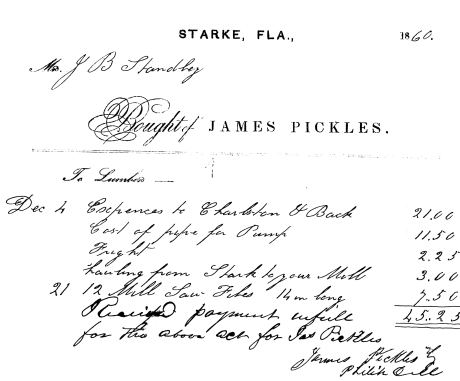 STARKE, FLA., 1860.
Mr. J B Standley
Bought of JAMES PICKLES.
To Lumber
Dec 4 Expences to Charleston & Back 21.00
Cost of pipe for Pump 11.50
Fright 2.25
hauling from Stark to your Mill 3.00
21 12 Mill Saw Files 14 in long 7.50
Received payment in full 45.25
for the above act for Jas Pickles
James Pickles
Philip